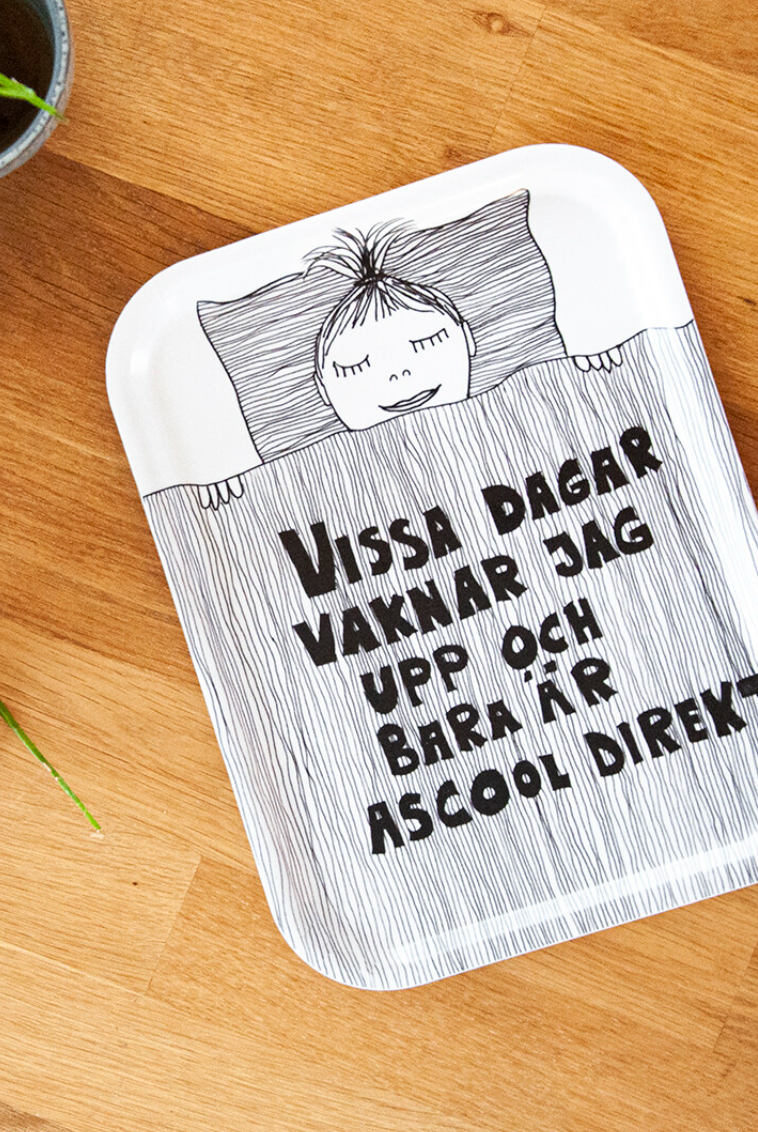 VISSA DAGAR
VAKNAR JAG
UPP OCH
BARA ÄR
ASCOOL DIREKT